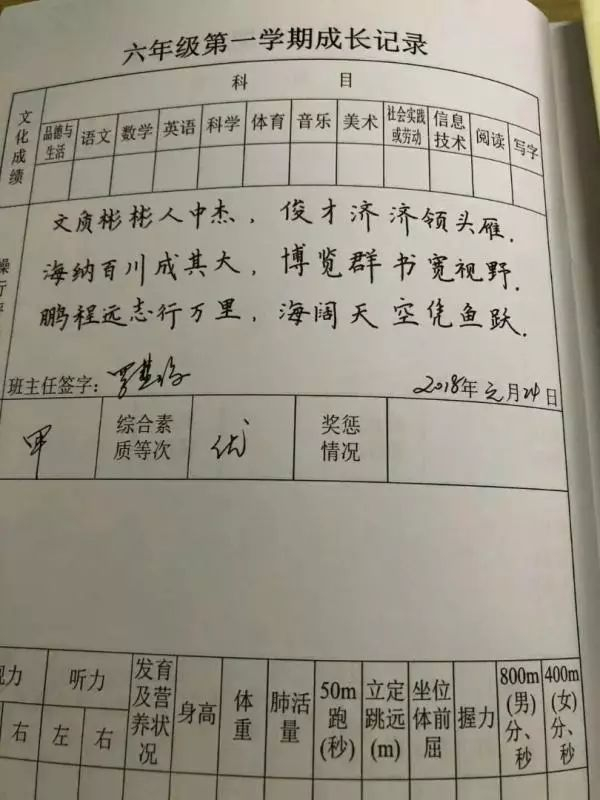 六年级第一学期成长记录
科 目
文化成绩
品德与生活 语文 数学 英语 科学 体育 音乐 美术 社会实践或劳动 信息技术 阅读 写字
文质彬彬人中杰，俊才济济领头雁．
海纳百川成其大，博览群书宽视野．
鹏程远志行万里，海阔天空凭鱼跃．
操行评
班主任签字：
2018年元月24日
甲 综合素质等次 优 奖惩情况
视力 听力 发育及营养状况 身高 体重 肺活量 50m跑(秒) 立定跳远(m) 坐位体前屈 握力 800m(男)分、秒 400m(女)分、秒
右 左 右